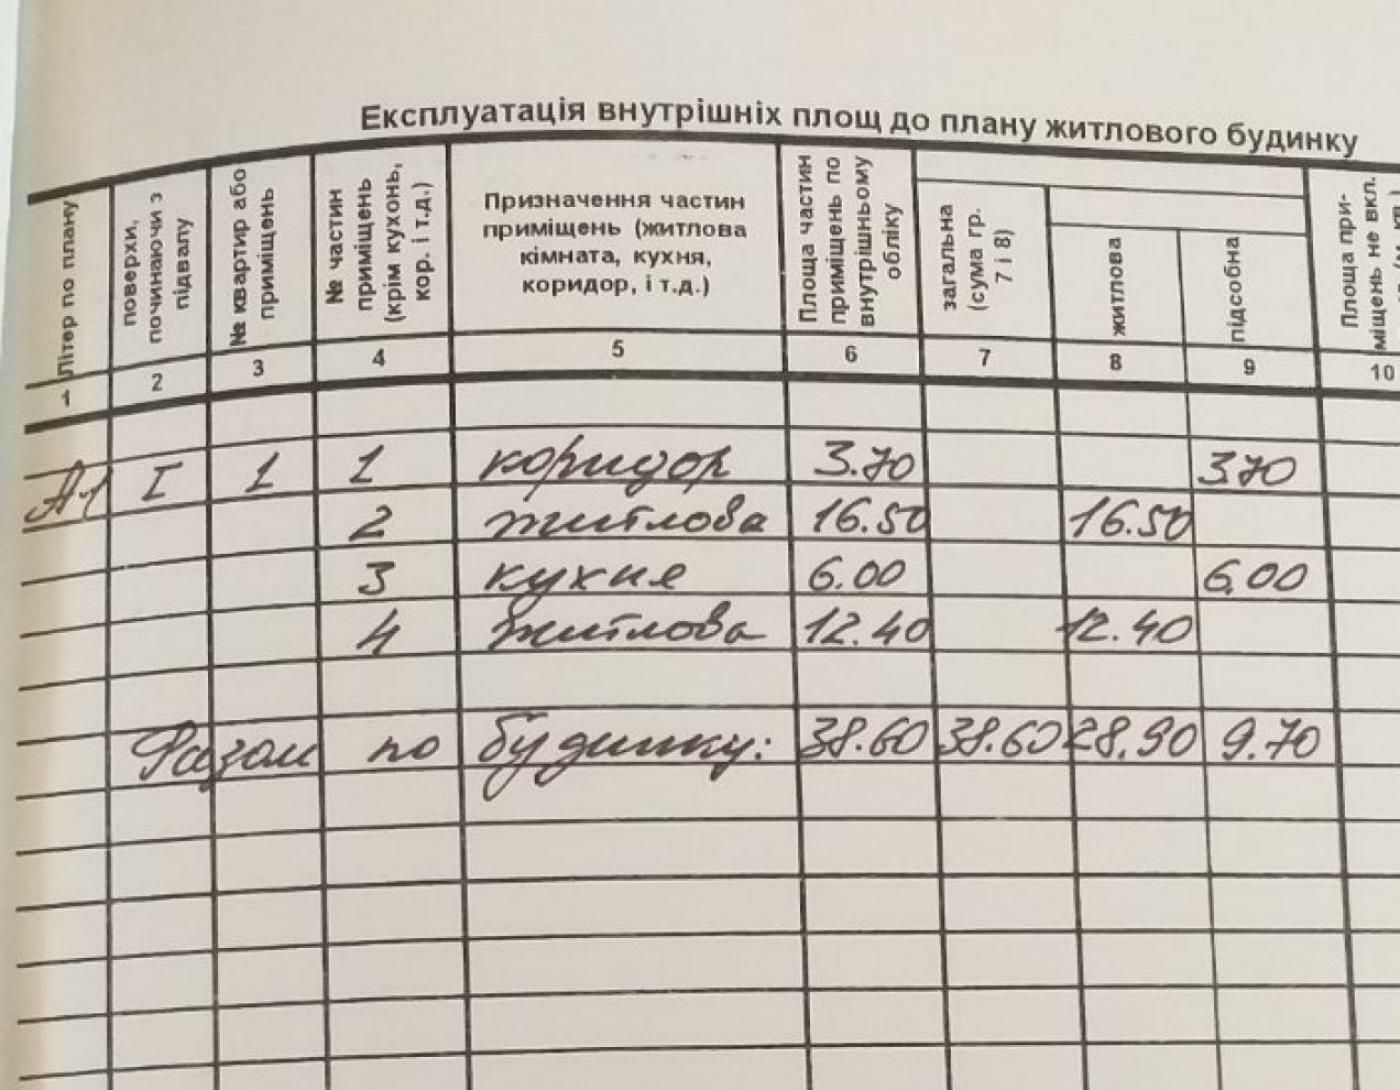 Експлуатація внутрішніх площ до плану житлового будинку
Літер по плану
поверхи, починаючи з підвалу
№ квартир або приміщень
№ частин приміщень (крім кухонь, кор. і т.д.)
Призначення частин приміщень (житлова кімната, кухня, коридор, і т.д.)
Площа частин приміщень по внутрішньому обліку
загальна (сума гр. 7 і 8)
житлова
підсобна
Площа при- міщень не вкл.
1 2 3 4 5 6 7 8 9 10
А1 I 1 1 коридор 3.70 3.70
2 житлова 16.50 16.50
3 кухня 6.00 6.00
4 житлова 12.40 12.40
Разом по будинку: 38.60 38.60 28.90 9.70